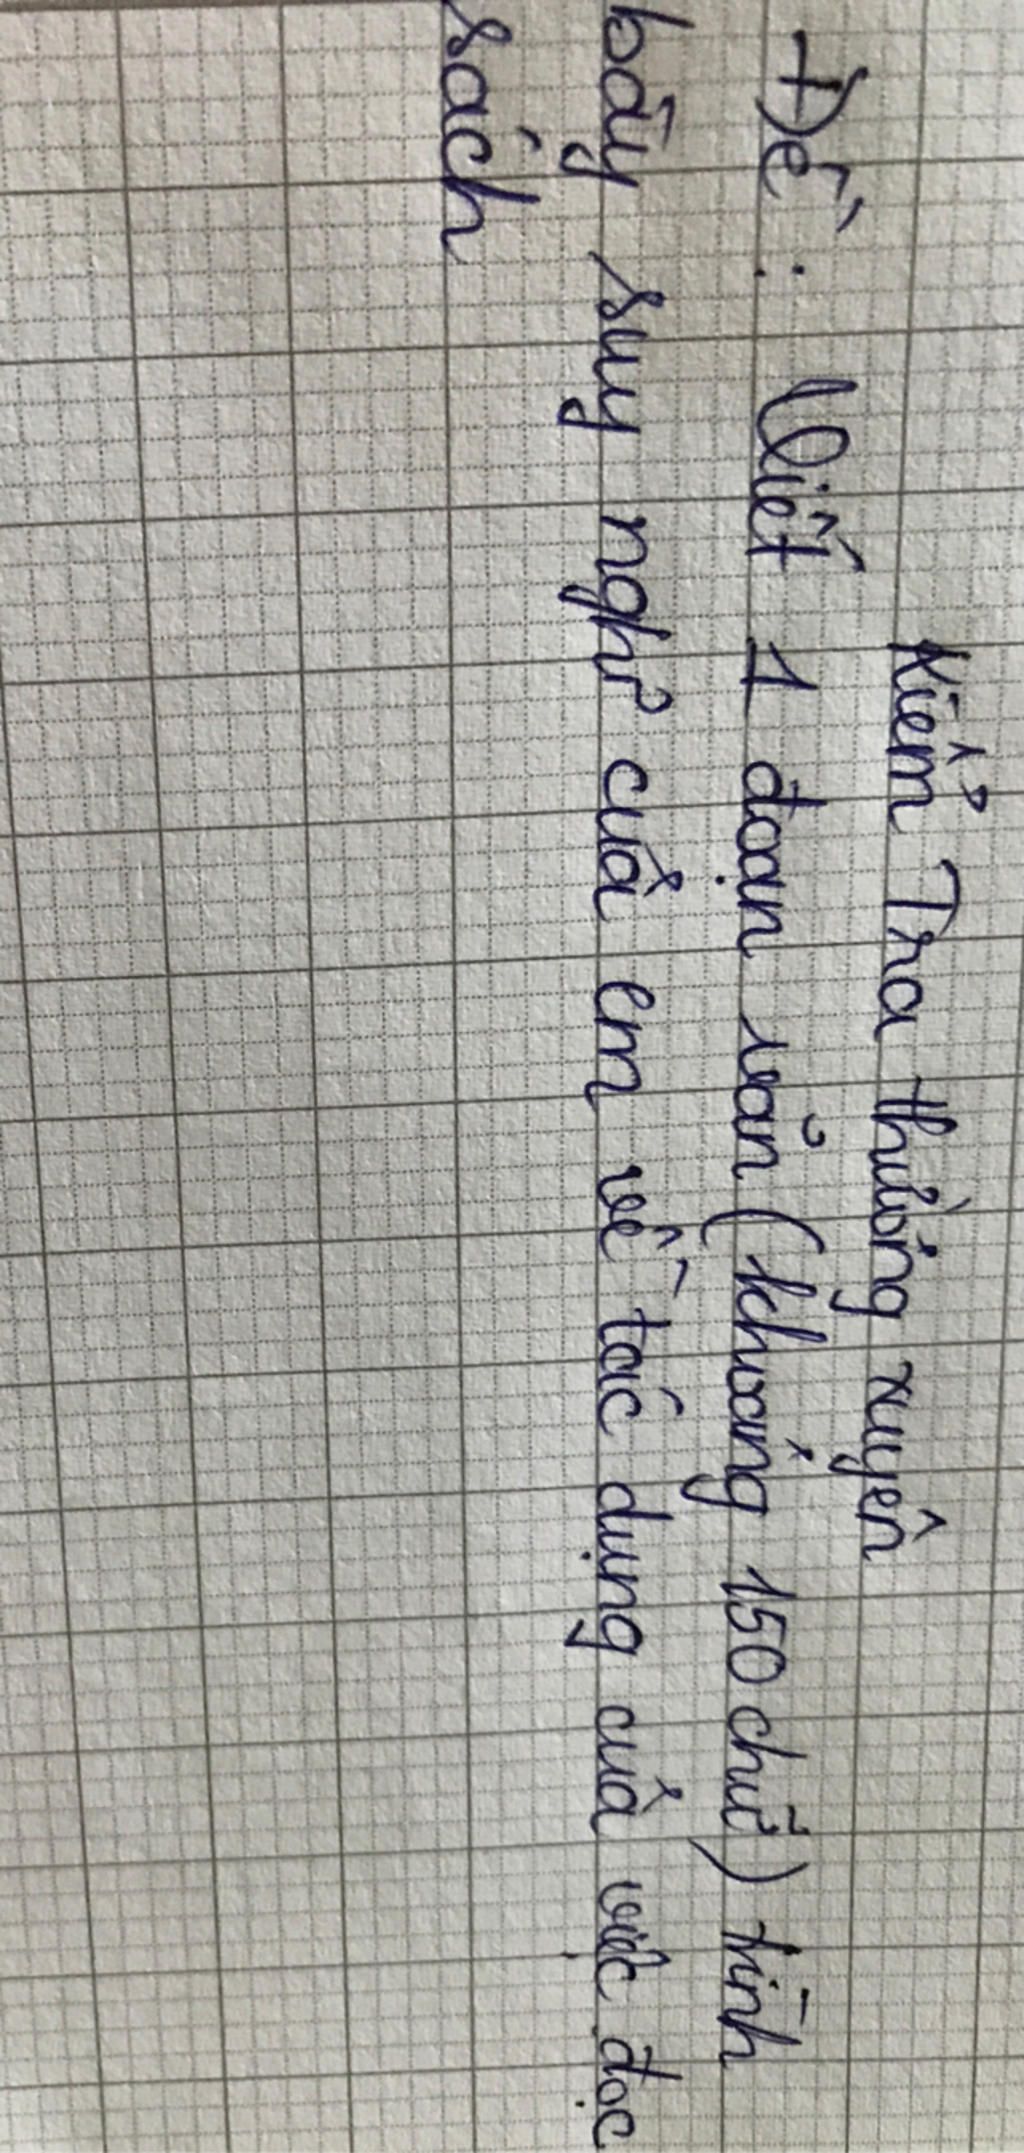 Kiểm Tra thường xuyên
Đề : Viết 1 đoạn văn (khoảng 150 chữ) trình
bày suy nghĩ của em về tác dụng của việc đọc
sách